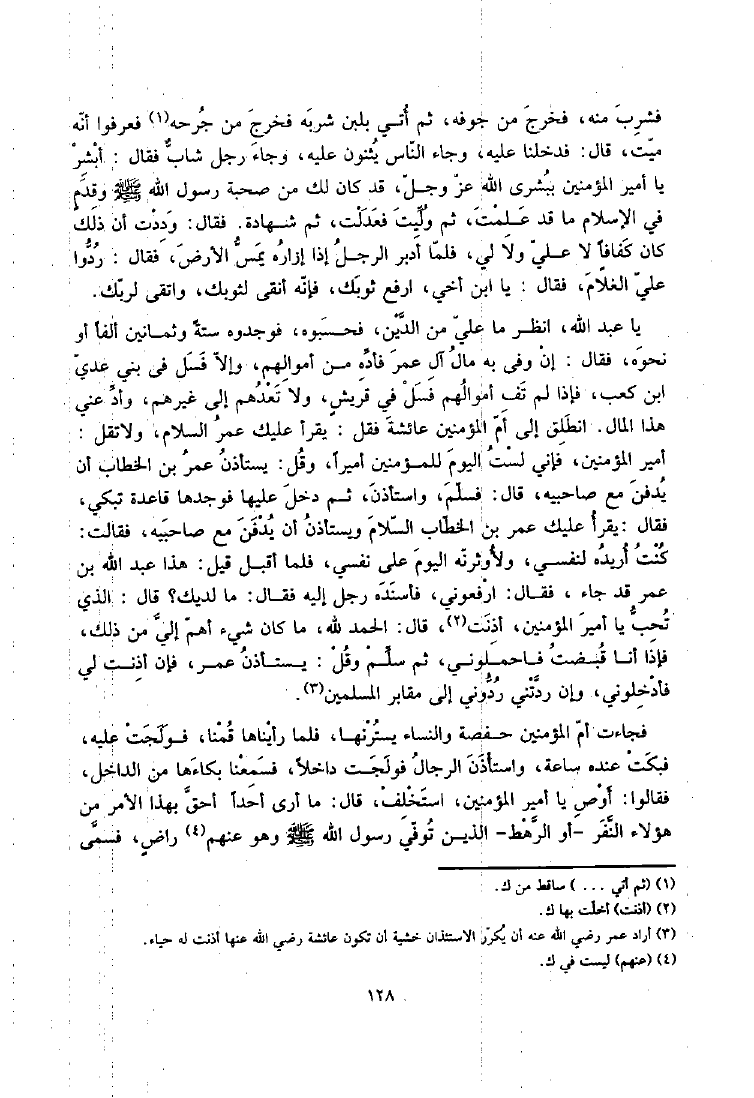 فشربَ منه، فخرجَ من جوفه، ثم أُتـي بلبن شربَه فخرجَ من جُرحه(١) فعرفوا أنّه
ميّت، قال: فدخلنا عليه، وجاء النّاس يُثنون عليه، وجاءَ رجل شابٌّ فقال : أبْشِرْ
يا أمير المؤمنين ببُشرى الله عزّ وجلّ، قد كان لك من صحبة رسول الله ﷺ وقِدَمٍ
في الإسلام ما قد عَـلِمْتَ، ثم وُلِّيتَ فعَدَلْت، ثم شـهادة. فقال: وَدِدْت أن ذلكَ
كان كَفافاً لا عـليّ ولا لي، فلمّا أدبر الرجلُ إذا إزارُه يَمَسُّ الأرضَ، فقال : رُدُّوا
عليّ الغلامَ، فقال : يا ابن أخي، ارفع ثوبَك، فإنّه أنقى لثوبك، واتقى لربّك.
يا عبد الله، انظر ما عليّ من الدَّيْن، فحـسَبوه، فوجدوه ستةً وثمـانين ألفاً أو
نحوَه، فقال : إنْ وفى به مالُ آل عمرَ فأدِّه مـن أموالِهم، وإلاّ فَسَل فى بني عديّ
ابن كعب، فإذا لم تَفِ أموالُهم فسَلْ في قريشٍ، ولا تَعْدُهم إلى غيرهم، وأدِّ عني
هذا المال. انطَلِق إلى أمّ المؤمنين عائشةَ فقل : يقرأ عليك عمرُ السلام، ولاتقل :
أمير المؤمنين، فإني لسْتُ اليومَ للمـؤمنين أميراً، وقُل: يستأذنُ عمرُ بن الخطاب أن
يُدفنَ مع صاحبيه، قال: فسلّمَ، واستأذنَ، ثـم دخلَ عليها فوجدها قاعدة تبكي،
فقال :يقرأُ عليك عمر بن الخطّاب السّلامَ ويستأذنُ أن يُدْفَنَ مع صاحبَيه، فقالت:
كُنْتُ أُريدُه لنفسـي، ولأُوثرنّه اليومَ على نفسي، فلما أقبل قيل: هذا عبد الله بن
عمر قد جاء ، فقـال: ارْفعوني، فأسنَدَه رجل إليه فقـال: ما لديك؟ قال : الذي
تُحِبُّ يا أميرَ المؤمنين، أذِنَت(٢)، قال: الحمد لله، ما كان شيء أهمّ إليَّ من ذلك،
فإذا أنـا قُبـضتُ فـاحمـلوني، ثم سلِّـمْ وقُلْ : يـستـأذنُ عمـر، فإن أذِنـت لي
فأدْخِلوني، وإن ردَّتْني رُدُّوني إلى مقابر المسلمين(٣).
فجاءت أمّ المؤمنين حـفـصة والنساء يستُرْنهـا، فلما رأيْناها قُمْنا، فـولَجَتْ عليه،
فبكَتْ عنده ساعة، واستأذَنَ الرجالُ فولَجَـت داخلاً، فسَمِعْنا بكاءَها من الداخل،
فقالوا: أَوْصِ يا أمير المؤمنين، استَخْلِفْ، قال: ما أرى أحداً أحقَّ بهذا الأمر من
هؤلاء النَّفَر -أو الرَّهْط- الذيـن تُوفّي رسول الله ﷺ وهو عنهم(٤) راضٍ، فسمَّى
(١) (ثم أتي ... ) ساقط من ك.
(٢) (أذنت) أخلّت بها ك.
(٣) أراد عمر رضي الله عنه أن يُكرّر الاستئذان خشية أن تكون عائشة رضي الله عنها أذنت له حياء.
(٤) (عنهم) ليست في ك.
١٢٨